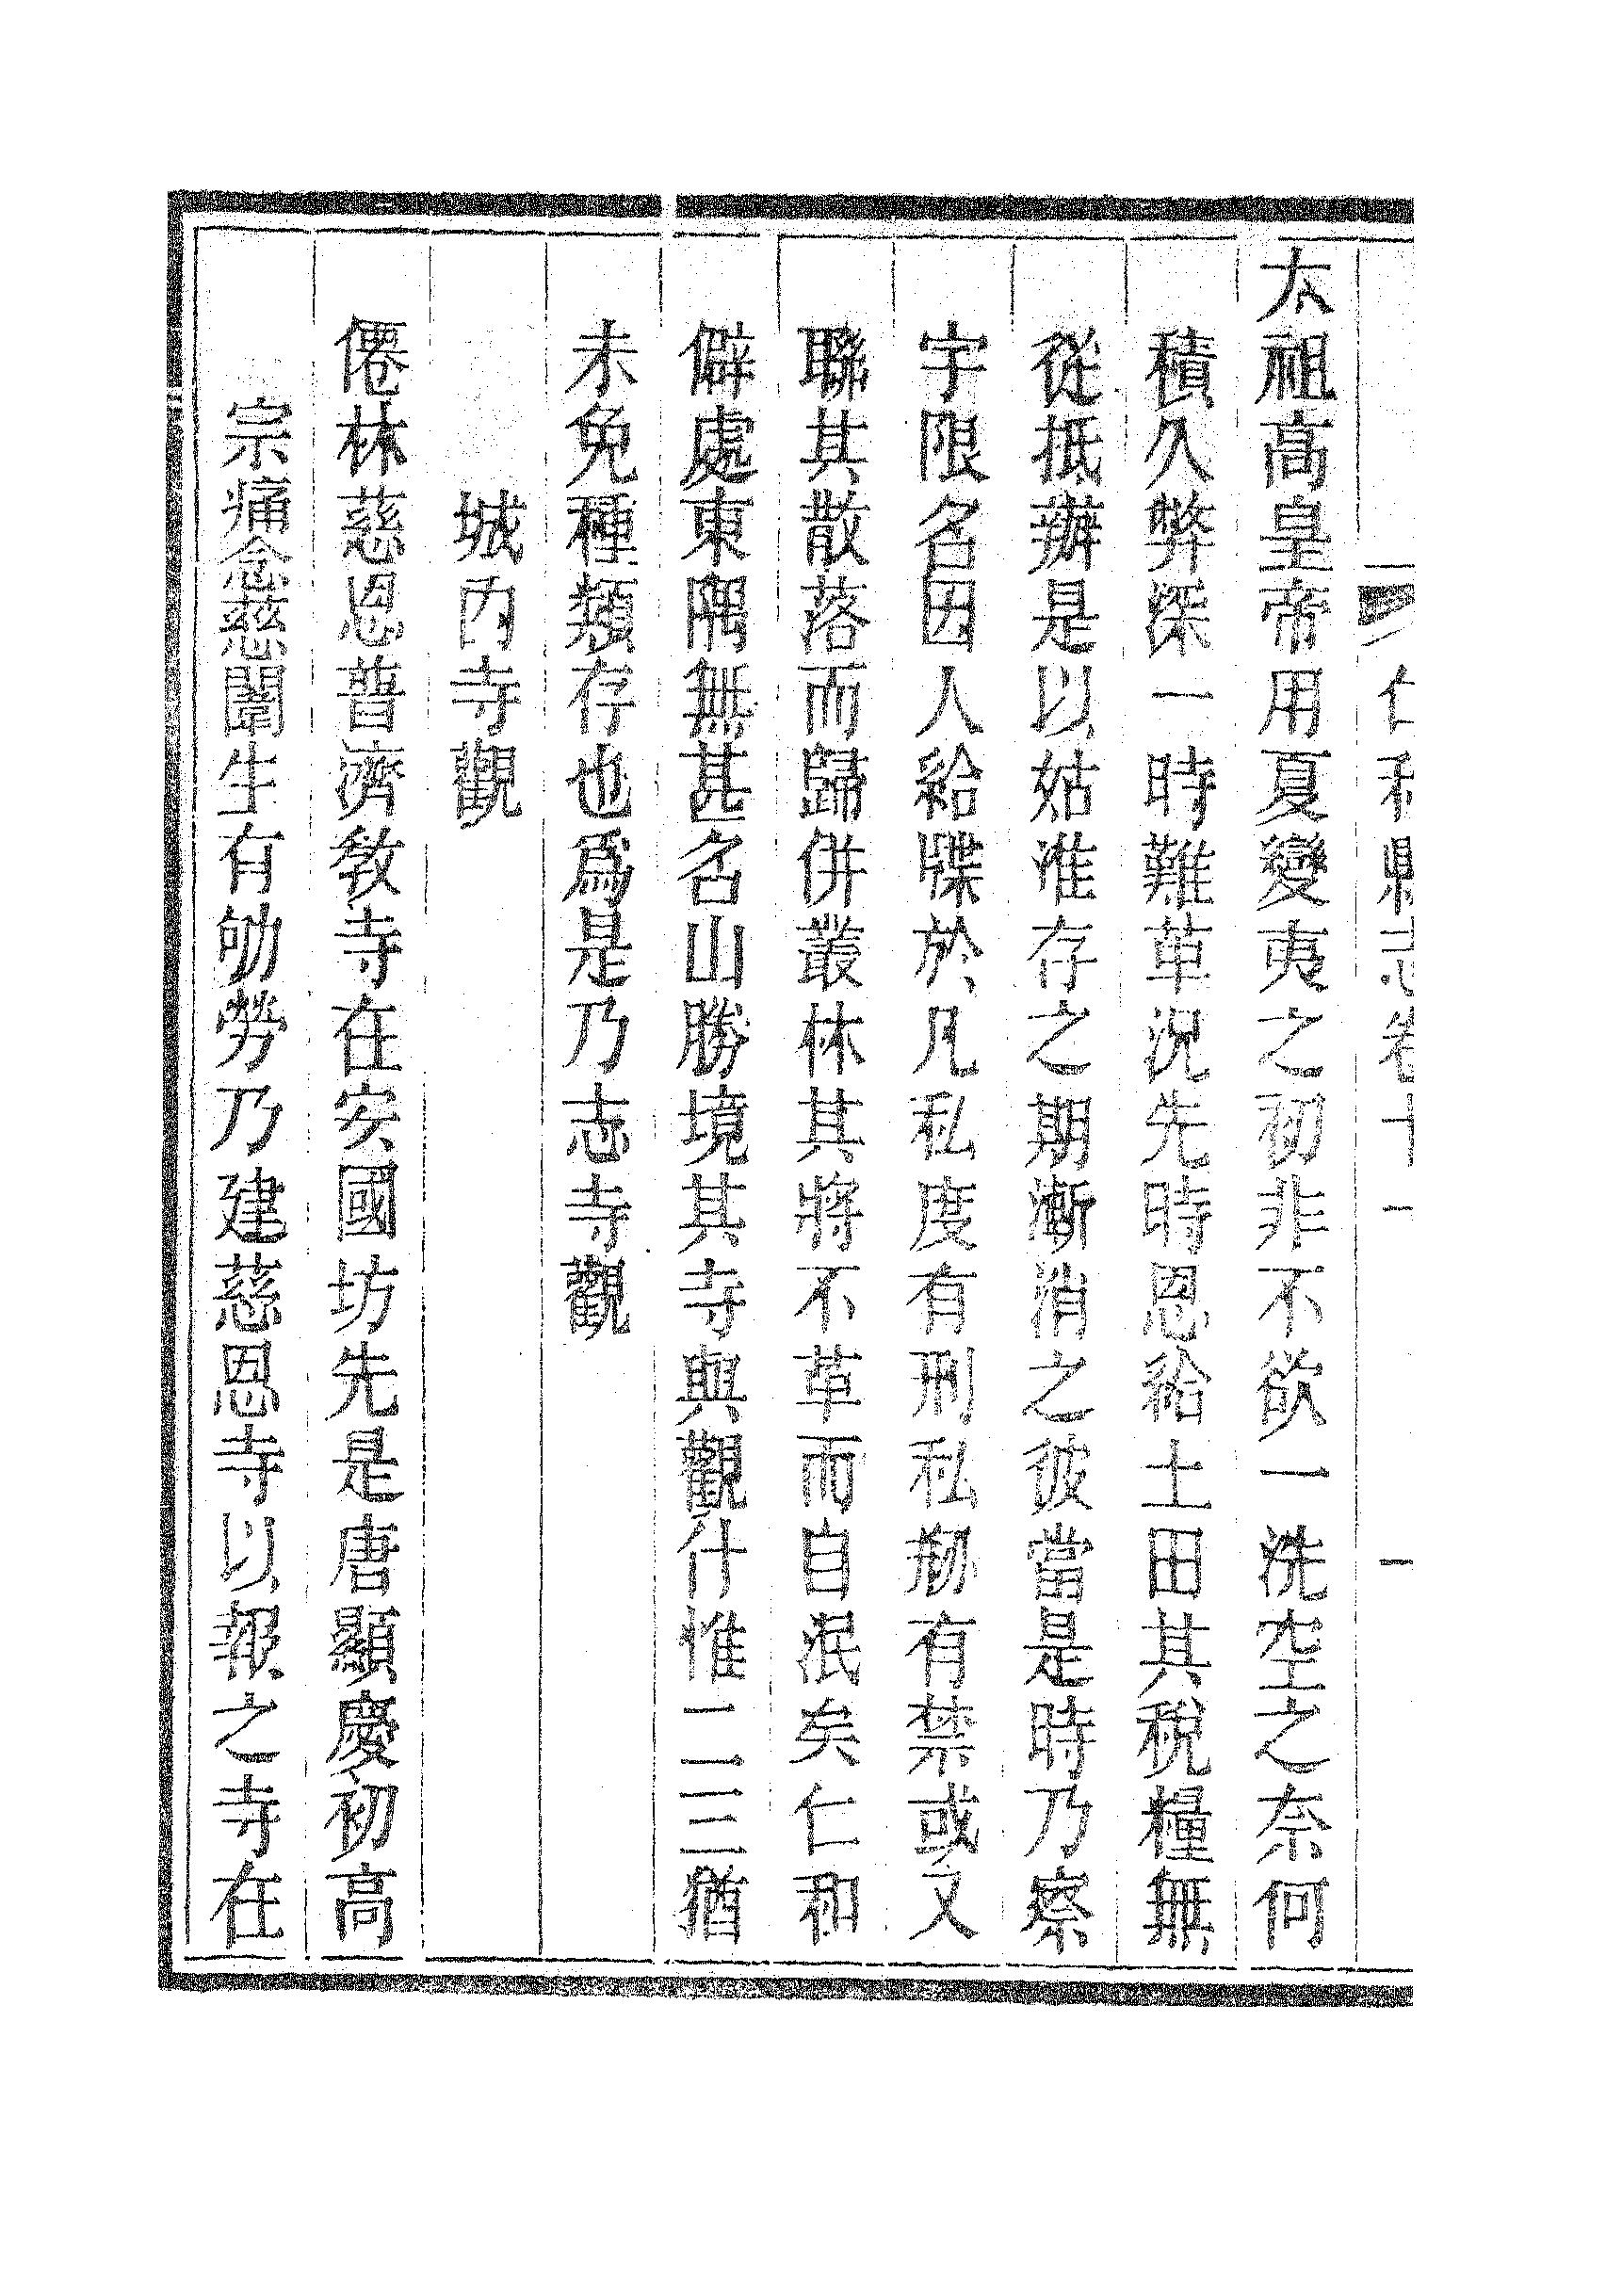 仁和縣志卷十一 一
太祖高皇帝用夏變夷之初非不欲一洗空之奈何
積久弊深一時難革況先時恩給土田其稅糧無
從抵辦是以姑准存之期漸消之彼當是時乃察
宇限名因人給牒於凡私度有刑私剏有禁或又
聯其散落而歸併叢林其將不革而自泯矣仁和
僻處東隅無甚名山勝境其寺與觀什惟二三猶
未免種類存也爲是乃志寺觀
城內寺觀
僊林慈恩普濟教寺在安國坊先是唐顯慶初高
宗痛念慈闈生有劬勞乃建慈恩寺以報之寺在